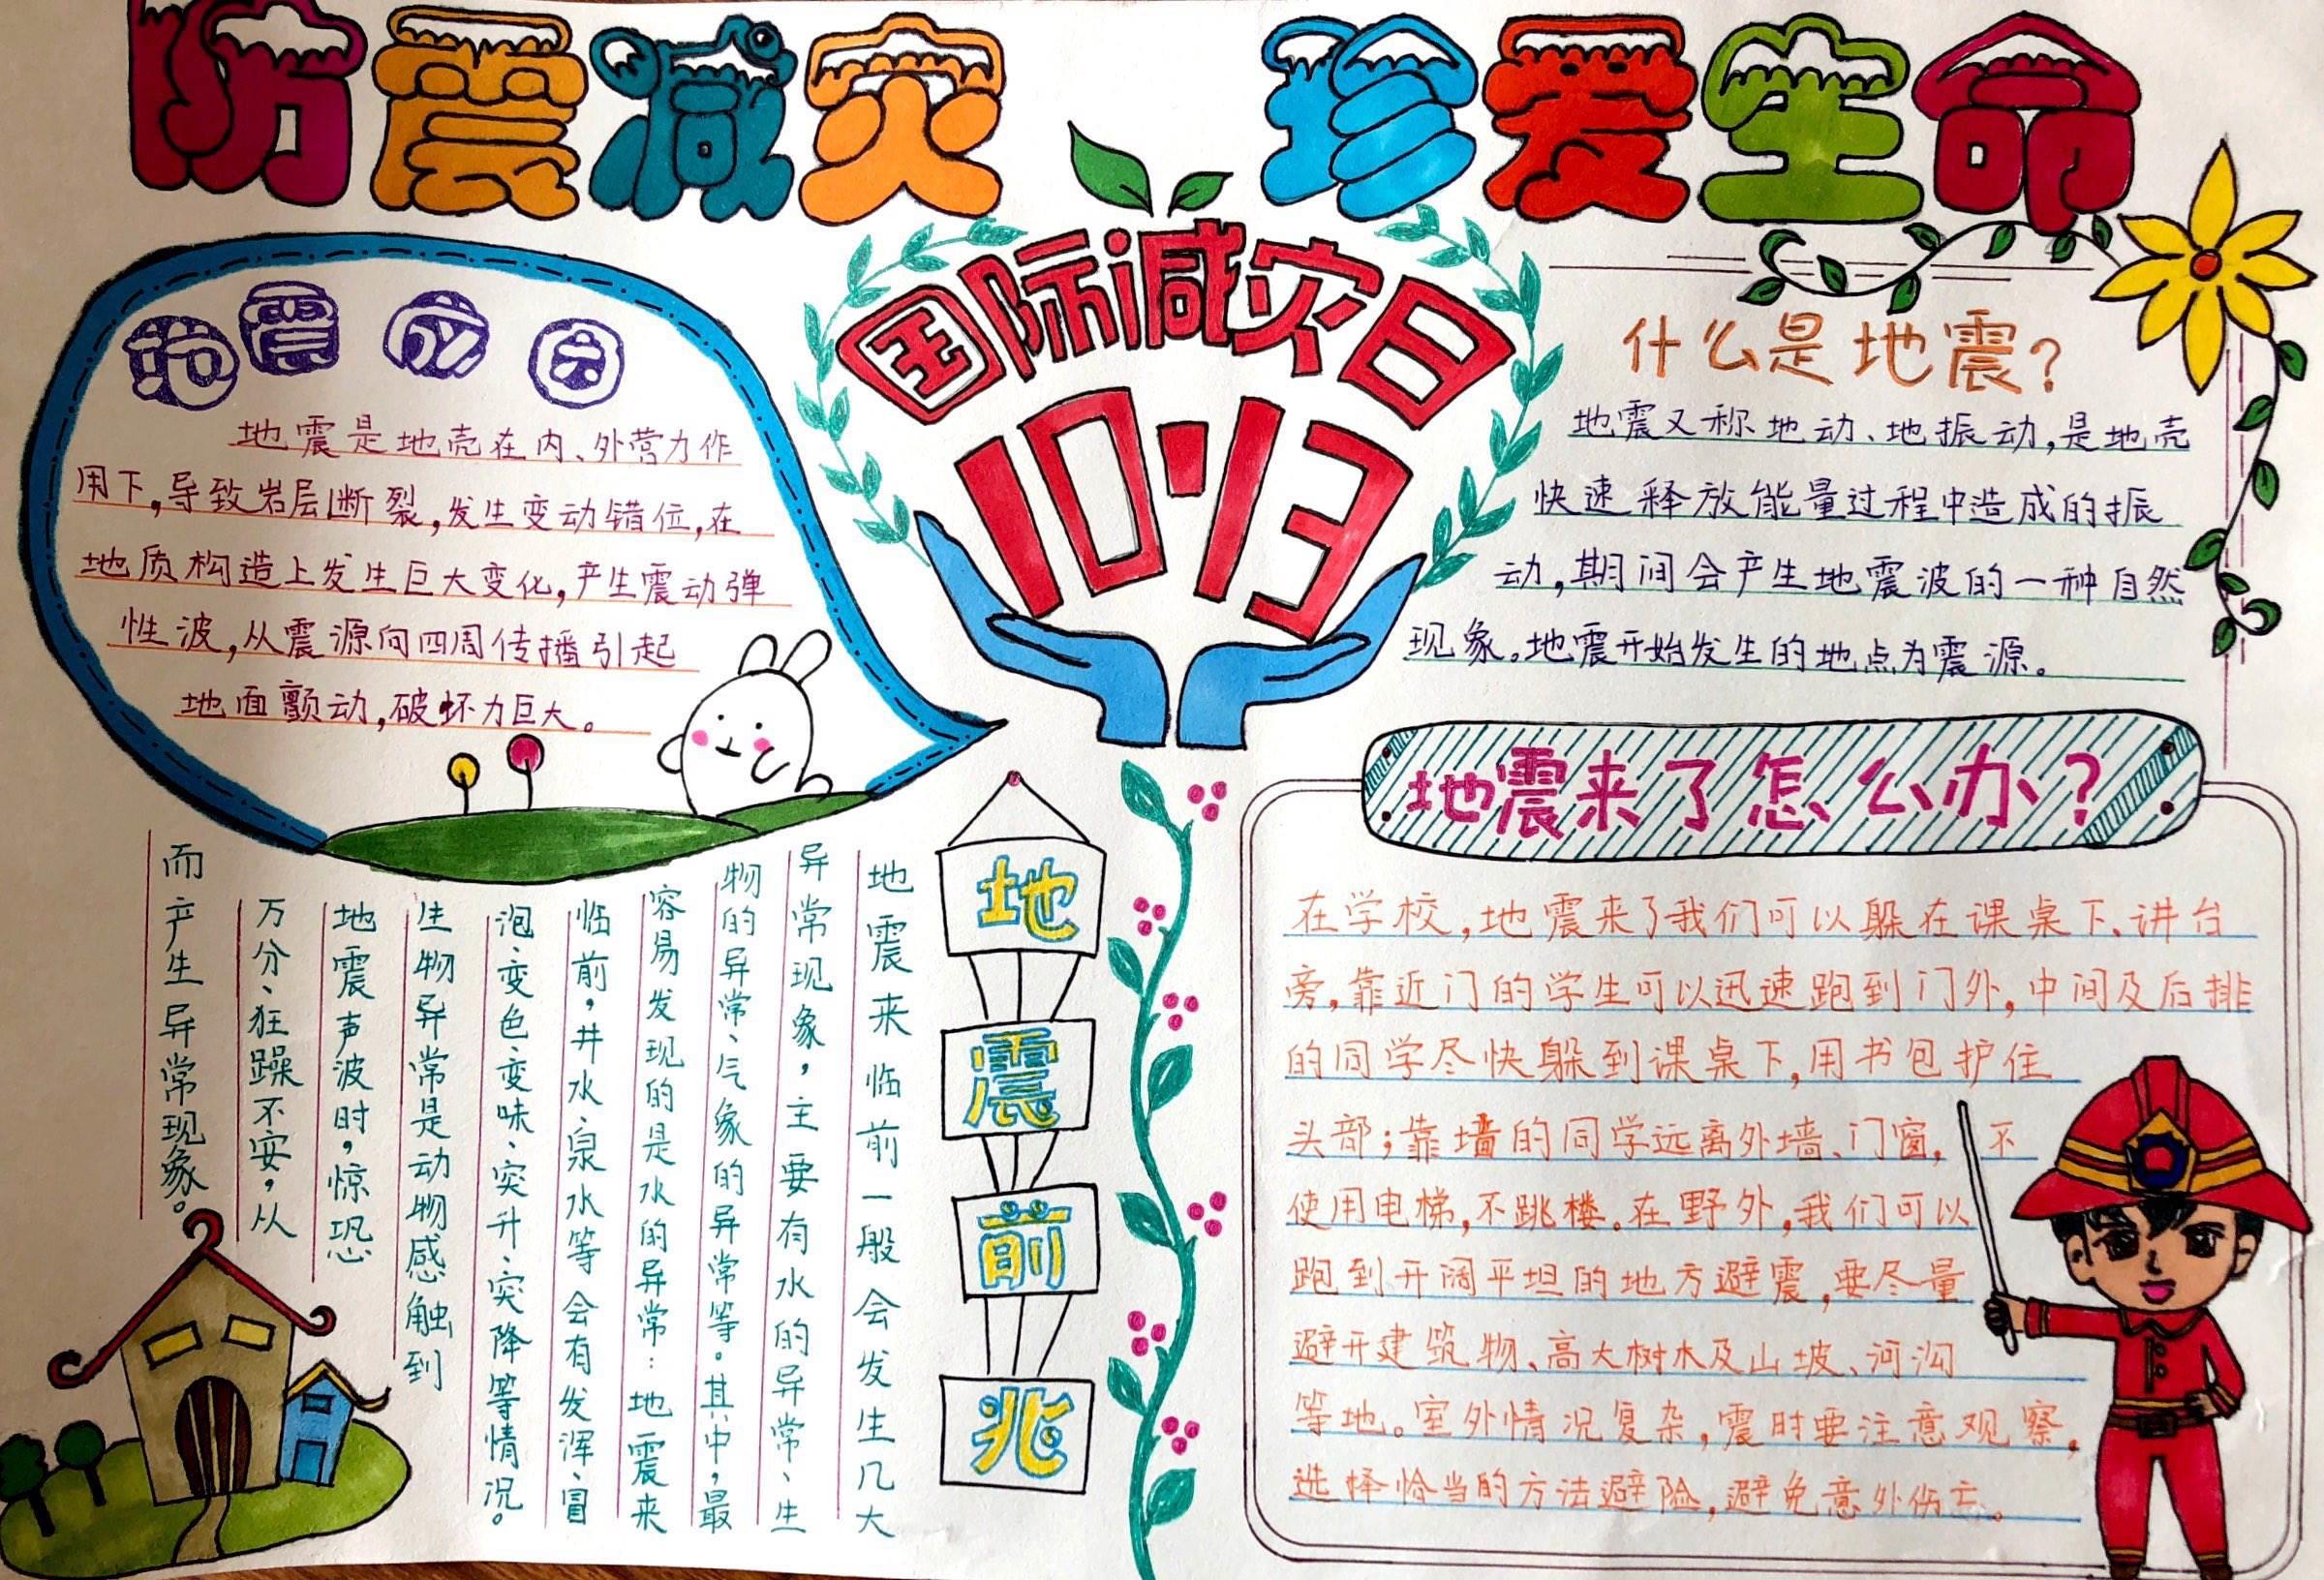 防震减灾 珍爱生命
国际减灾日
10·13
地震成因
地震是地壳在内、外营力作
用下,导致岩层断裂,发生变动错位,在
地质构造上发生巨大变化,产生震动弹
性波,从震源向四周传播引起
地面颤动,破坏力巨大。
什么是地震?
地震又称地动、地振动,是地壳
快速释放能量过程中造成的振
动,期间会产生地震波的一种自然
现象。地震开始发生的地点为震源。
地震前兆
地震来临前一般会发生几大
异常现象,主要有水的异常、生
物的异常、气象的异常等。其中,最
容易发现的是水的异常:地震来
临前,井水、泉水等会有发浑、冒
泡、变色、变味、突升、突降等情况。
生物异常是动物感触到
地震声波时,惊恐
万分、狂躁不安,从
而产生异常现象。
地震来了怎么办?
在学校,地震来了我们可以躲在课桌下、讲台
旁,靠近门的学生可以迅速跑到门外,中间及后排
的同学尽快躲到课桌下,用书包护住
头部;靠墙的同学远离外墙、门窗,不
使用电梯,不跳楼。在野外,我们可以
跑到开阔平坦的地方避震,要尽量
避开建筑物、高大树木及山坡、河沟
等地。室外情况复杂,震时要注意观察,
选择恰当的方法避险,避免意外伤亡。